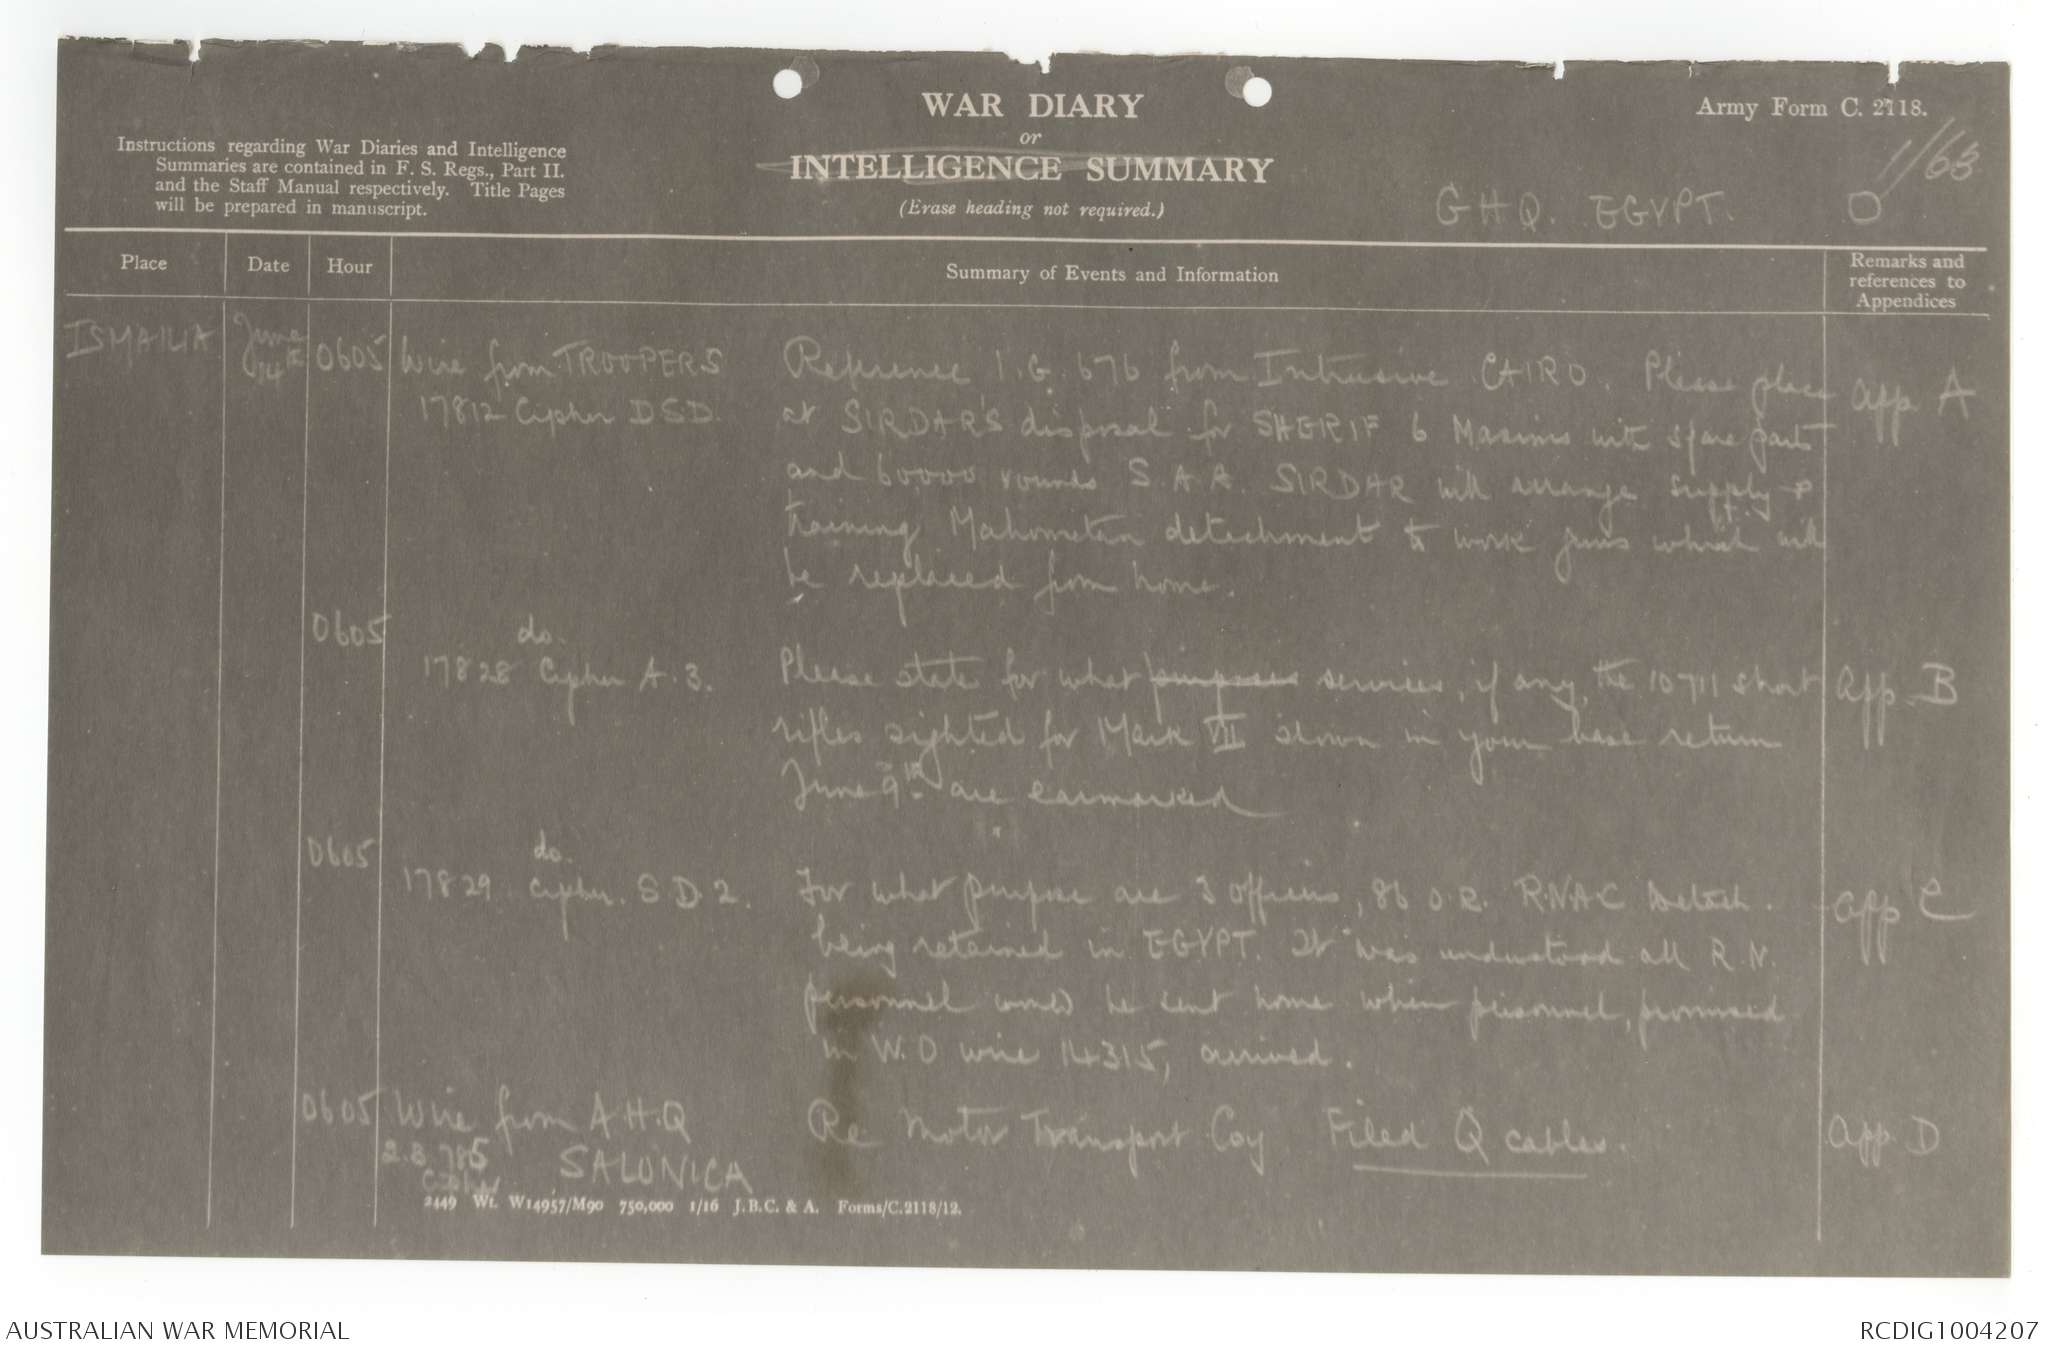 WAR DIARY
or
INTELLIGENCE SUMMARY
(Erase heading not required.)
Army Form C. 2118.
Instructions regarding War Diaries and Intelligence
Summaries are contained in F. S. Regs., Part II.
and the Staff Manual respectively. Title Pages
will be prepared in manuscript.
1/63
GHQ. EGYPT. O
Place Date Hour Summary of Events and Information Remarks and references to Appendices
ISMAILIA June 14th 0605 Wire from TROOPERS Reference I.G. 676 from Intrusive CAIRO. Please place App A
17812 Cipher DSD. at SIRDAR'S disposal for SHERIF 6 Maxims with spare parts
and 60000 rounds S.A.A. SIRDAR will arrange supply &
training Mahometan detachment to work guns which will
be replaced from home.
0605 do.
17828 Cipher A.3. Please state for what purposes services, if any, the 10711 short App. B
rifles sighted for Mark VII shown in your base return
June 9th are earmarked
0605 do.
17829 Cipher. S.D.2. For what purpose are 3 officers, 86 O.R. R.N.A.C Detach. App C
being retained in EGYPT. It was understood all R.N.
personnel would be sent home when personnel, promised
in W.O wire 14315, arrived.
0605 Wire from A.H.Q Re Motor Transport Coy. Filed Q cables. App D
785 SALONICA
Cipher
2449 Wt. W14957/M90 750,000 1/16 J.B.C. & A. Forms/C.2118/12.
AUSTRALIAN WAR MEMORIAL
RCDIG1004207